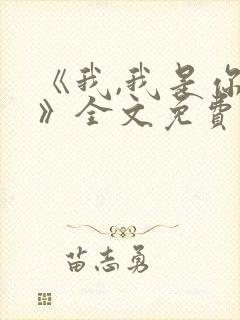 《我,我是你
》全文免费
苗志勇